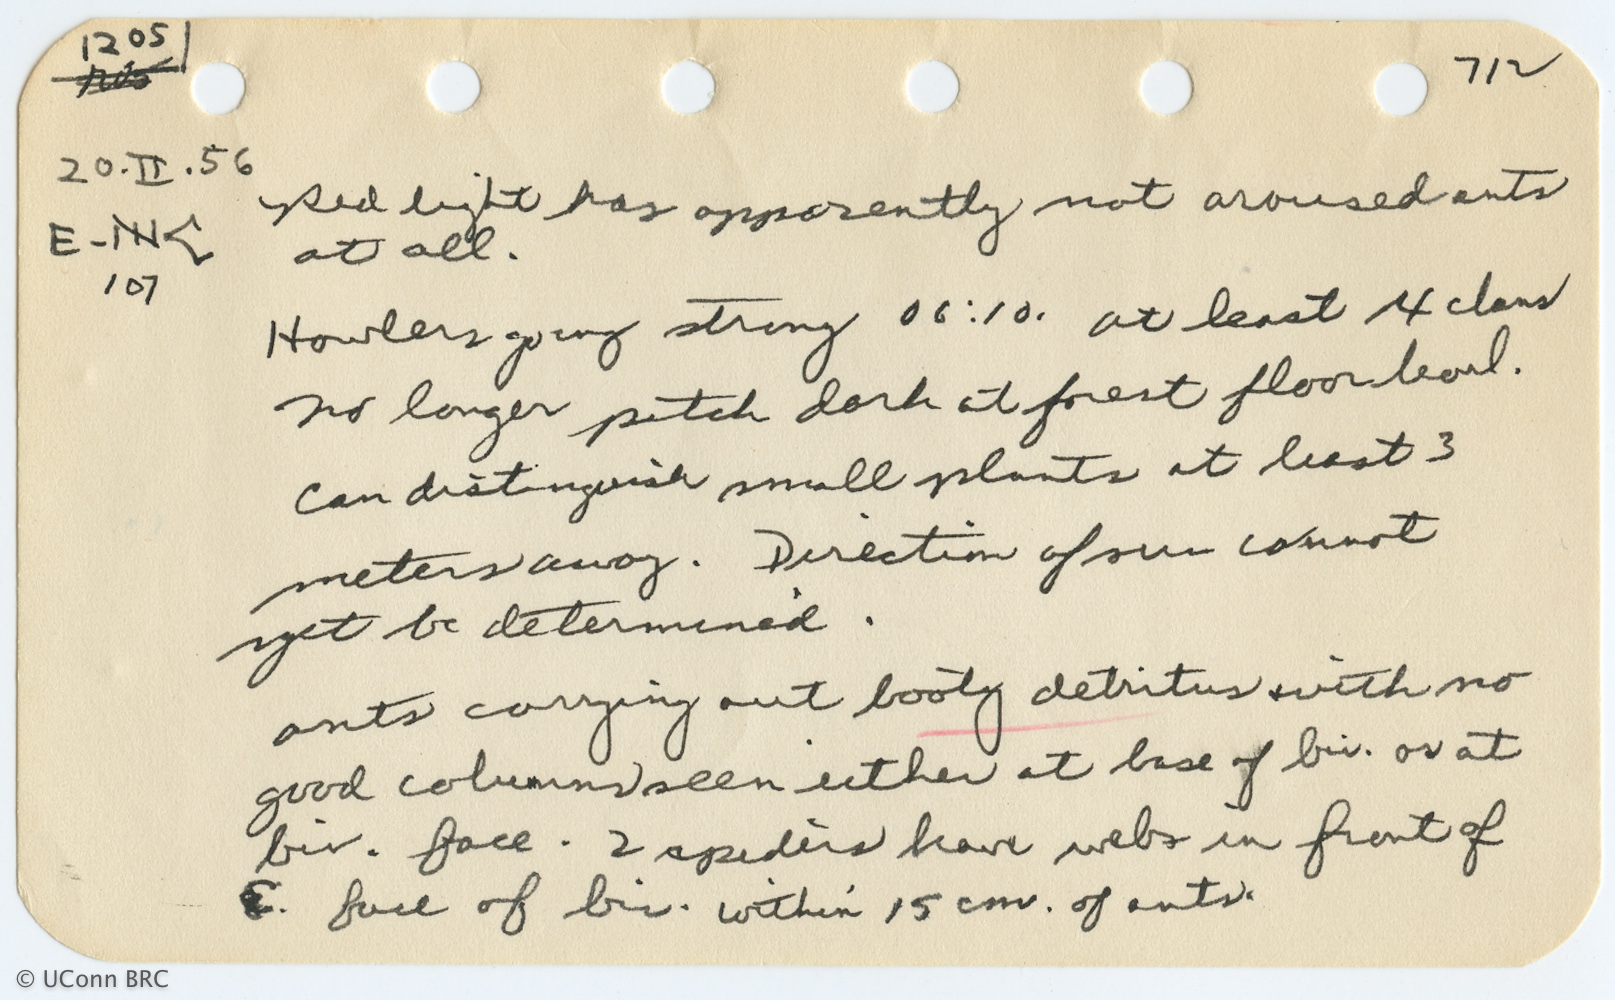 1205
712
20.II.56
107
Red light has apparently not aroused ants
at all.
Howlers going strong 06:10. at least 4 clans
No longer pitch dark at forest floor level.
Can distinguish small plants at least 3
meters away. Direction of sun cannot
yet be determined.
ants carrying out booty detritus with no
good columns seen either at base of biv. or at
biv. face. 2 spiders have webs in front of
E. face of biv. within 15 cm. of ants.
© UConn BRC